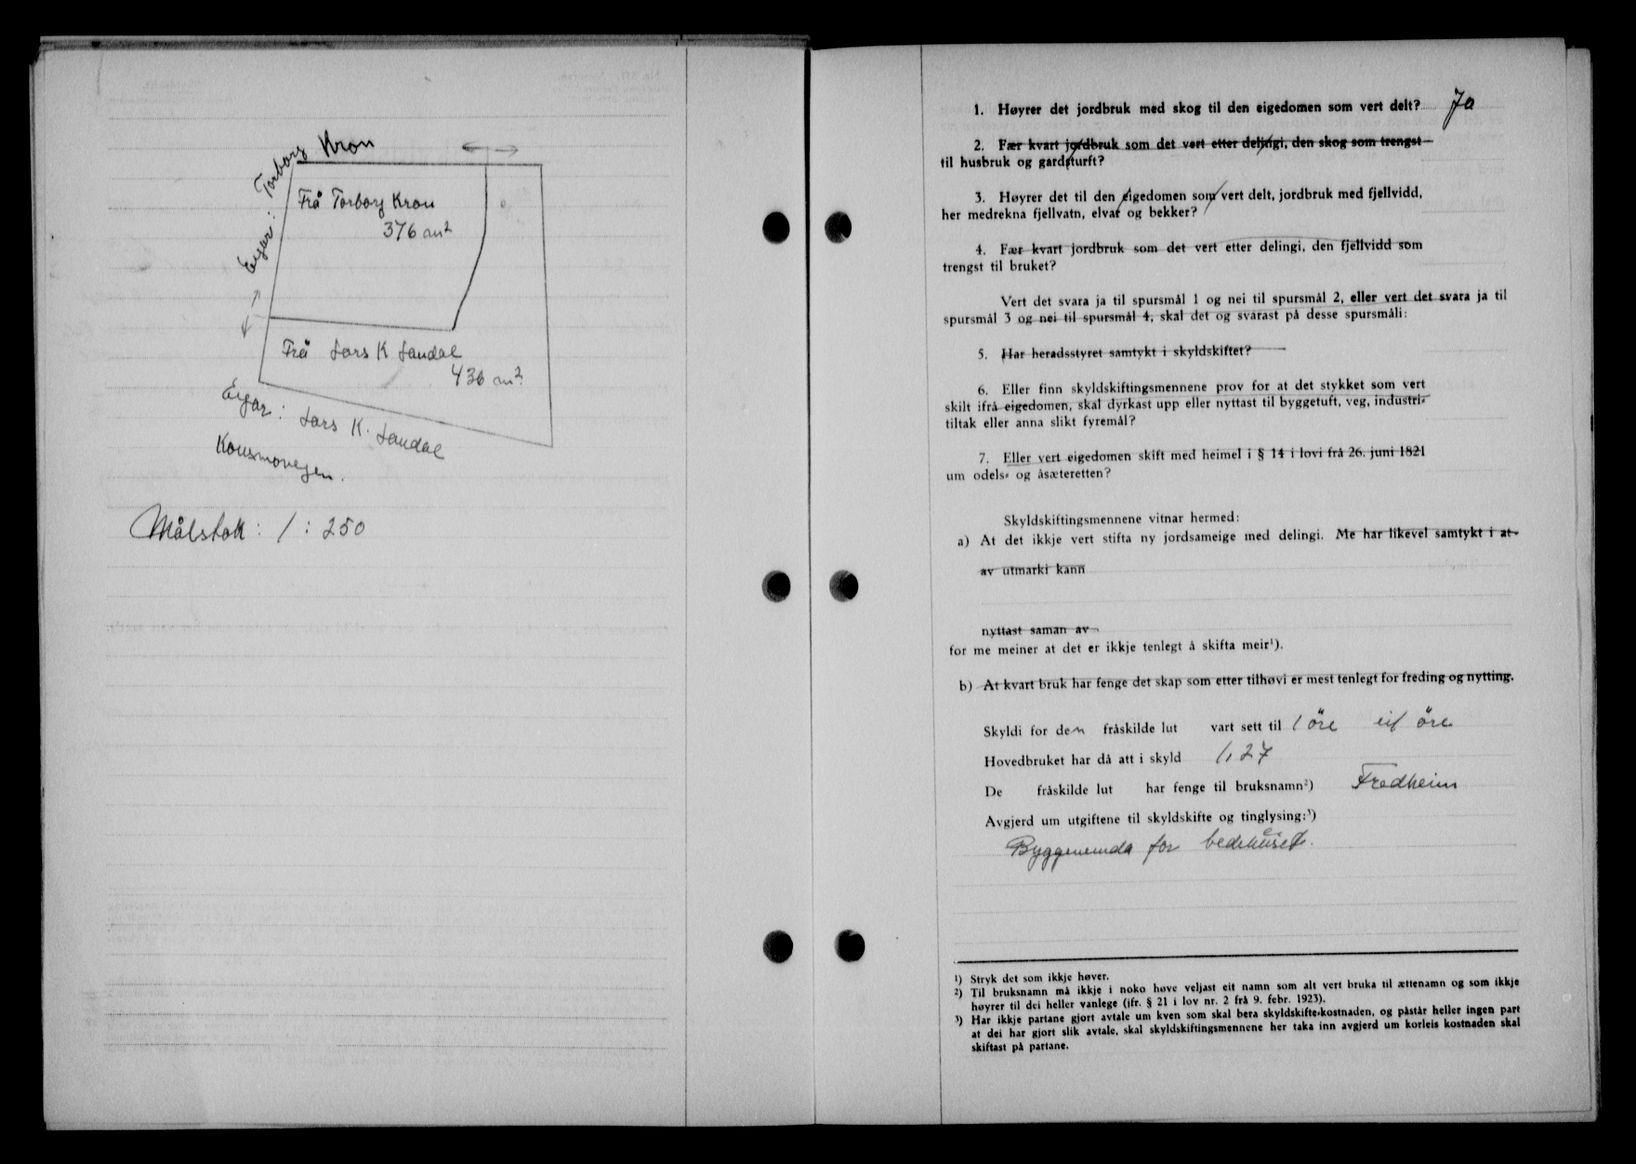 Eigar: Torborg Kron
Frå Torborg Kron
376 m²
Frå Lars K Landal
436 m²
Eigar: Lars K. Landal
Konsmovegen.
Målstok: 1:250
1. Høyrer det jordbruk med skog til den eigedomen som vert delt? Ja
2. Fær kvart jordbruk som det vert etter delingi, den skog som trengst
til husbruk og gardsturft?
3. Høyrer det til den eigedomen som vert delt, jordbruk med fjellvidd,
her medrekna fjellvatn, elvar og bekker?
4. Fær kvart jordbruk som det vert etter delingi, den fjellvidd som
trengst til bruket?
Vert det svara ja til spursmål 1 og nei til spursmål 2, eller vert det svara ja til
spursmål 3 og nei til spursmål 4, skal det og svarast på desse spursmåli:
5. Har heradsstyret samtykt i skyldskiftet?
6. Eller finn skyldskiftingsmennene prov for at det stykket som vert
skilt ifrå eigedomen, skal dyrkast upp eller nyttast til byggetuft, veg, industri-
tiltak eller anna slikt fyremål?
7. Eller vert eigedomen skift med heimel i § 14 i lovi frå 26. juni 1821
um odels- og åsæteretten?
Skyldskiftingsmennene vitnar hermed:
a) At det ikkje vert stifta ny jordsameige med delingi. Me har likevel samtykt i at
av utmarki kann
nyttast saman av
for me meiner at det er ikkje tenlegt å skifta meir¹).
b) At kvart bruk har fenge det skap som etter tilhøvi er mest tenlegt for freding og nytting.
Skyldi for den fråskilde lut vart sett til 1 öre eit öre
Hovedbruket har då att i skyld 1,27
De fråskilde lut har fenge til bruksnamn²) Fredheim
Avgjerd um utgiftene til skyldskifte og tinglysing:³)
Byggenemda for bedehuset.
¹) Stryk det som ikkje høver.
²) Til bruksnamn må ikkje i noko høve veljast eit namn som alt vert bruka til ættenamn og som ikkje
høyrer til dei heller vanlege (jfr. § 21 i lov nr. 2 frå 9. febr. 1923).
³) Har ikkje partane gjort avtale um kven som skal bera skyldskifte-kostnaden, og påstår heller ingen part
at dei har gjort slik avtale, skal skyldskiftingsmennene her taka inn avgjerd um korleis kostnaden skal
skiftast på partane.